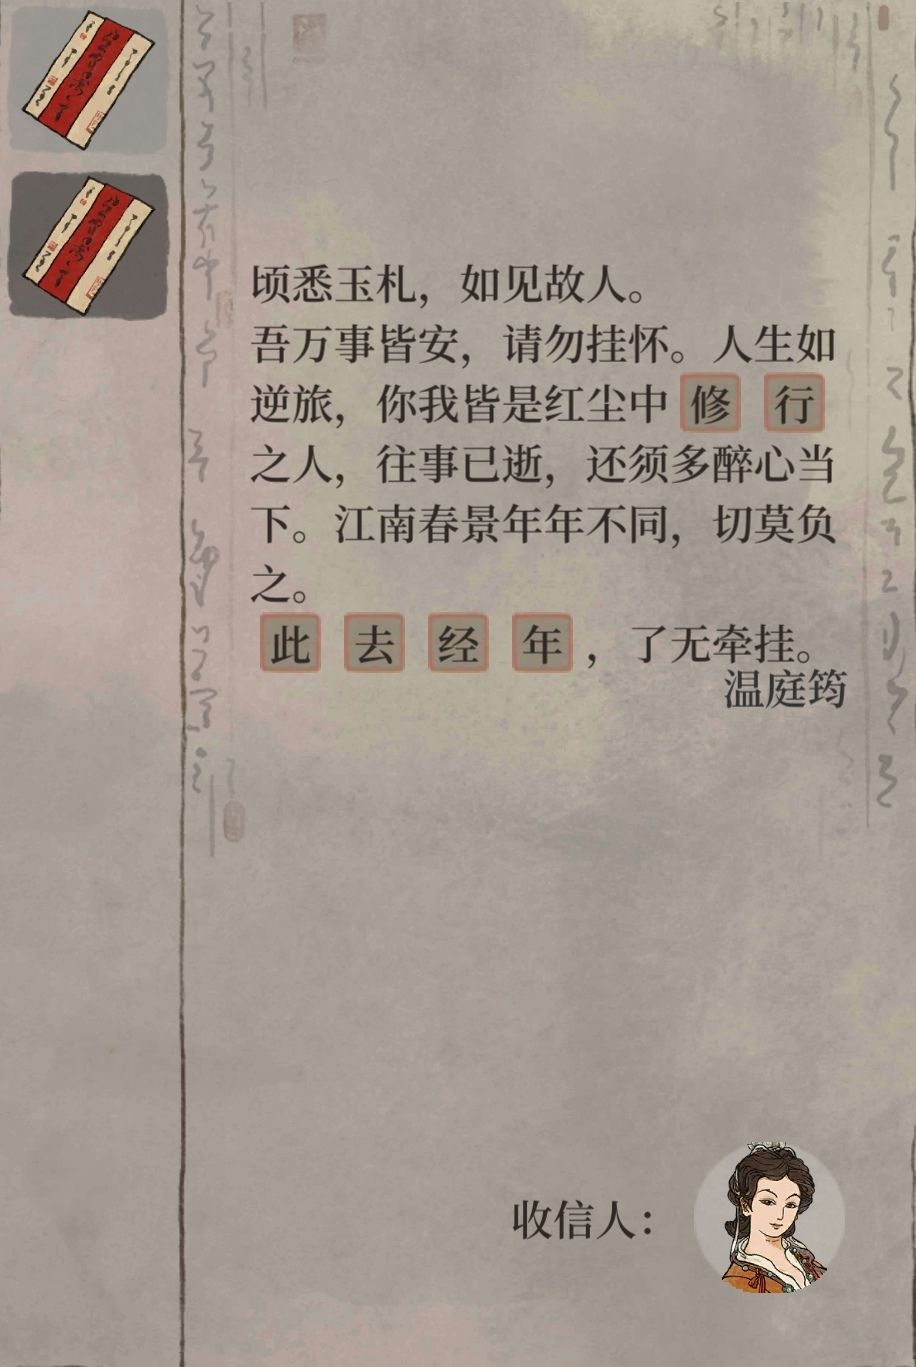 顷悉玉札，如见故人。
吾万事皆安，请勿挂怀。人生如
逆旅，你我皆是红尘中修行
之人，往事已逝，还须多醉心当
下。江南春景年年不同，切莫负
之。
此去经年，了无牵挂。
温庭筠
收信人：